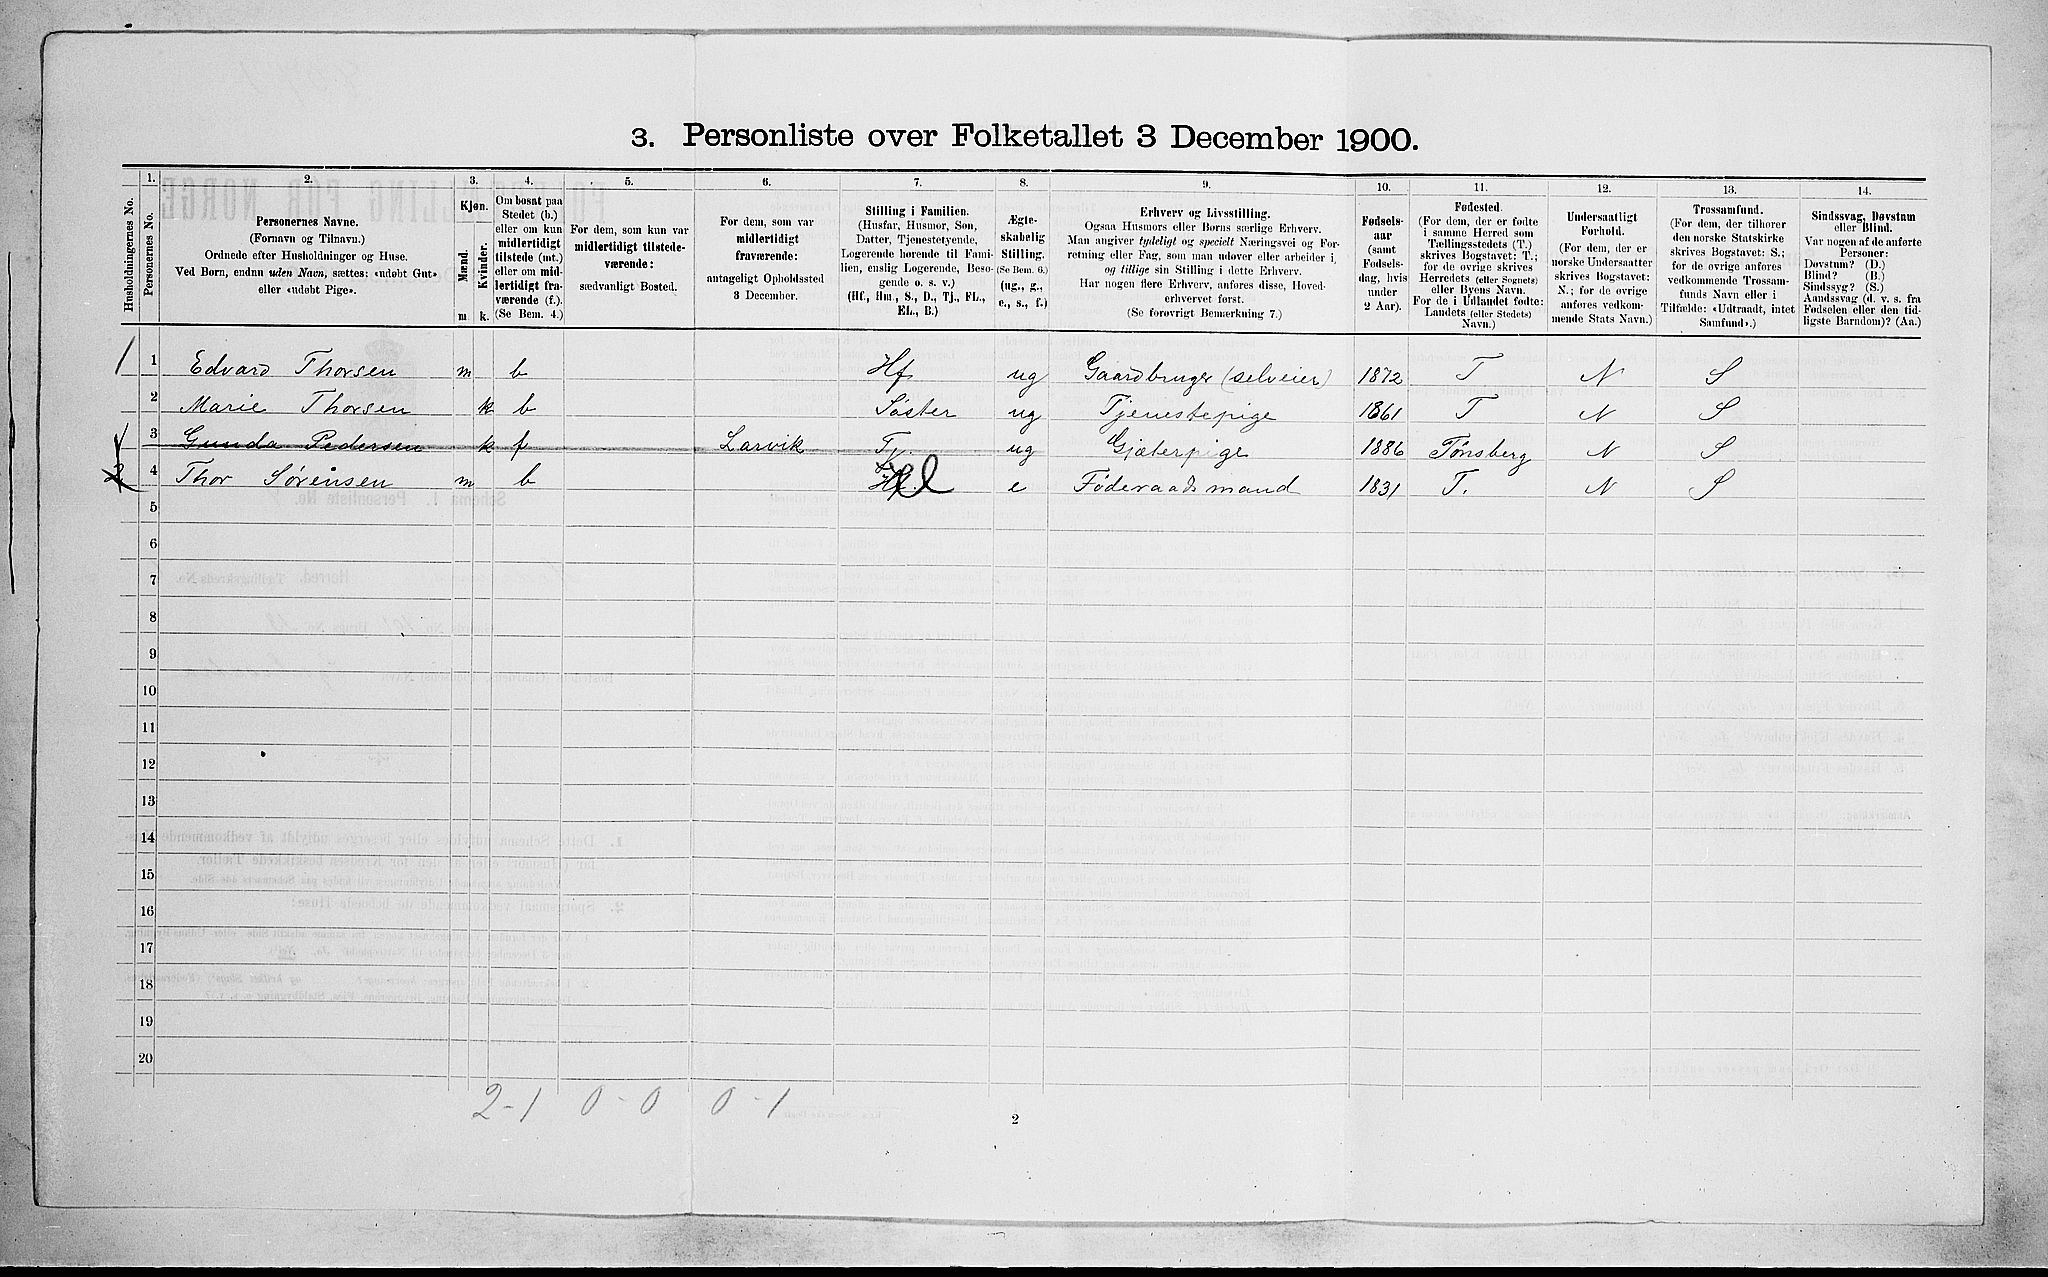 3. Personliste over Folketallet 3 December 1900.
1. 2. 3. 4. 5. 6. 7. 8. 9. 10. 11. 12. 13. 14.
Husholdningernes No.
Personernes No.
Personernes Navne.
(Fornavn og Tilnavn.)
Ordnede efter Husholdninger og Huse.
Ved Børn, endnu uden Navn, sættes: «udøbt Gut»
eller «udøbt Pige».
Kjøn.
Mænd.
Kvinder.
m. k.
Om bosat paa
Stedet (b.)
eller om kun
midlertidigt
tilstede (mt.)
eller om mid-
lertidigt fra-
værende (f.).
(Se Bem. 4.)
For dem, som kun var
midlertidigt tilstede-
værende:
sædvanligt Bosted.
For dem, som var
midlertidigt
fraværende:
antageligt Opholdssted
3 December.
Stilling i Familien.
(Husfar, Husmor, Søn,
Datter, Tjenestetyende,
Logerende hørende til Fami-
lien, enslig Logerende, Besø-
gende o. s. v.)
(Hf., Hm., S., D., Tj., FL.,
EL., B.)
Ægte-
skabelig
Stilling.
(Se Bem. 6.)
(ug., g.,
e., s., f.)
Erhverv og Livsstilling.
Ogsaa Husmors eller Børns særlige Erhverv.
Man angiver tydeligt og specielt Næringsvei og For-
retning eller Fag, som man udøver eller arbeider i,
og tillige sin Stilling i dette Erhverv.
Har nogen flere Erhverv, anføres disse, Hoved-
erhvervet først.
(Se forøvrigt Bemærkning 7.)
Fødsels-
aar
(samt
Fødsels-
dag, hvis
under
2 Aar).
Fødested.
(For dem, der er fødte
i samme Herred som
Tællingsstedets (T.)
skrives Bogstavet: T.;
for de øvrige skrives
Herredets (eller Sognets)
eller Byens Navn.
For de i Udlandet fødte:
Landets (eller Stedets)
Navn.)
Undersaatligt
Forhold.
(For dem, der er
norske Undersaatter
skrives Bogstavet:
N.; for de øvrige
anføres vedkom-
mende Stats Navn.)
Trossamfund.
(For dem, der tilhører
den norske Statskirke
skrives Bogstavet: S.;
for de øvrige anføres
vedkommende Trossam-
funds Navn eller i
Tilfælde: «Udtraadt, intet
Samfund».)
Sindssvag, Døvstum
eller Blind.
Var nogen af de anførte
Personer:
Døvstum? (D.)
Blind? (B.)
Sindssyg? (S.)
Aandssvag (d. v. s. fra
Fødselen eller den tid-
ligste Barndom)? (Aa.)
1 1 Edvard Thorsen m b Hf ug Gaardbruger (selveier) 1872 T N S
2 Marie Thorsen k b Søster ug Tjenestepige 1861 T N S
3 Gunda Pedersen k f Larvik Tj. ug Gjæterpige 1886 Tønsberg N S
2 4 Thor Sørensen m b e Føderaadsmand 1831 T. N S
5
6
7
8
9
10
11
12
13
14
15
16
17
18
19
20
2-1 0-0 0-1
2